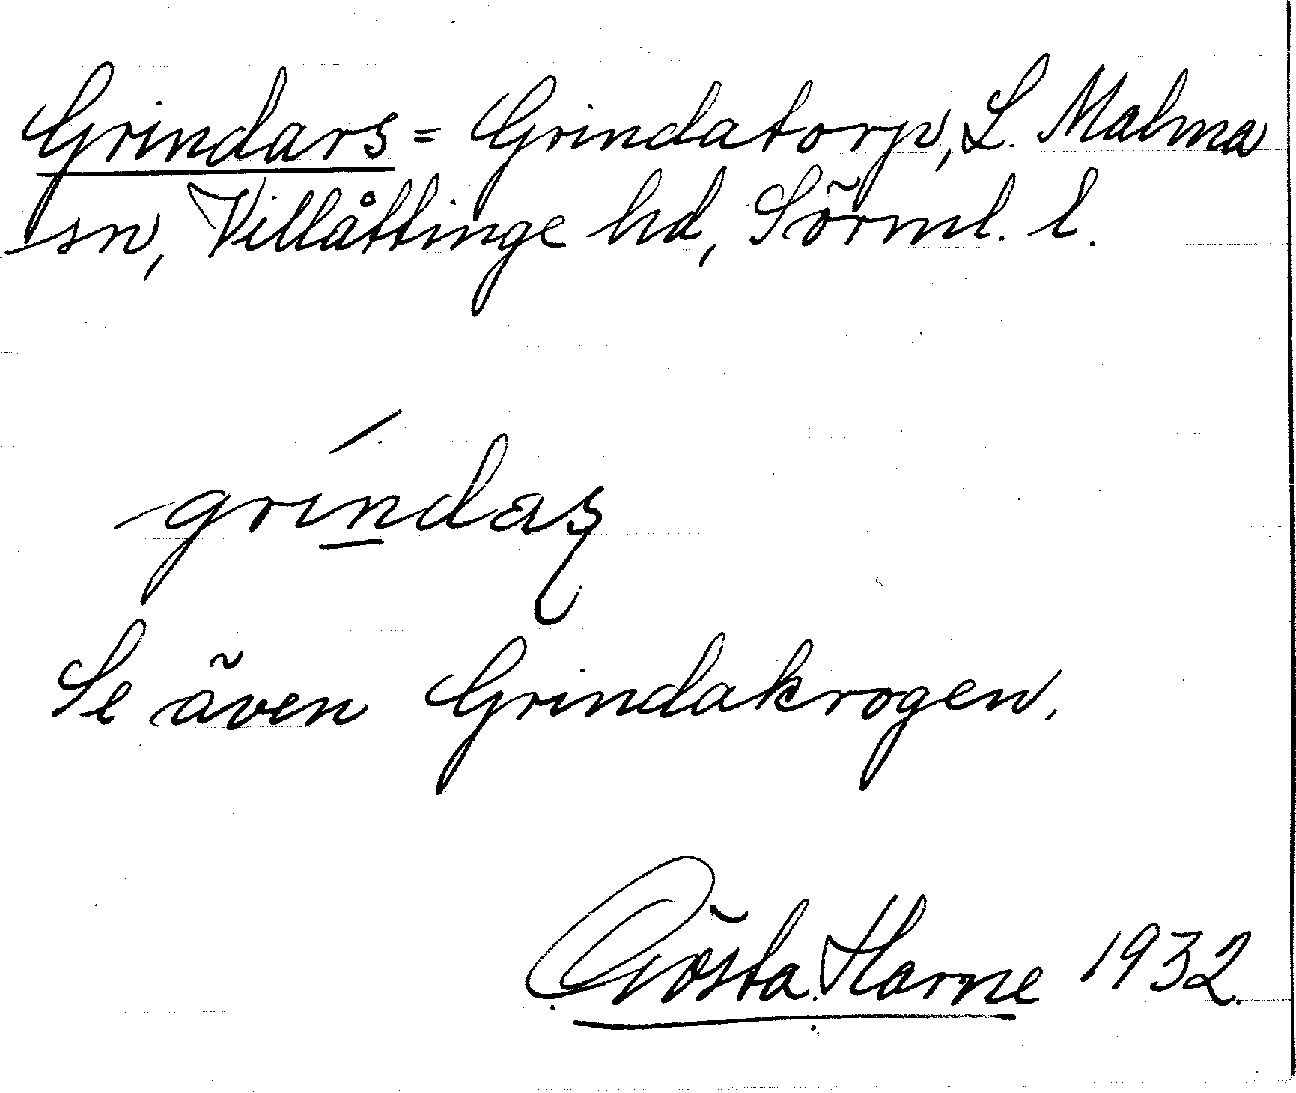 Grindars = Grindatorp, L. Malma
sn, Villåttinge hd, Sörml. l.
gríndaʂ
Se även Grindakrogen.
Gösta Harne 1932.